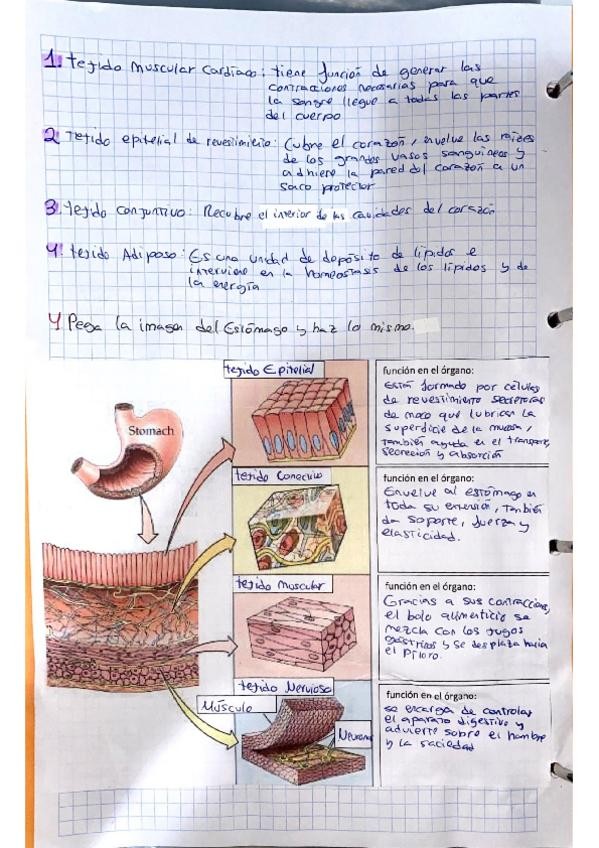 1. tejido muscular cardíaco: tiene función de generar las
contracciones necesarias para que
la sangre llegue a todas las partes
del cuerpo
2 Tejido epitelial de revestimiento: Cubre el corazón, envuelve las raizes
de los grandes vasos sanguineos y
adhiere la pared del corazón a un
saco protector
3. tejido conjuntivo: Recubre el interior de las cavidades del corazón
4. tejido Adiposo: Es una unidad de depósito de lípidos e
interviene en la homeostasis de los lípidos y de
la energía
4 Pega la imagen del Estómago y haz lo mismo.
tejido Epitelial
función en el órgano:
Está formado por células
de revestimiento secretoras
de moco que lubrican la
superficie de la mucosa,
también ayuda en el transporte,
secreción y absorción
Stomach
tejido Conectivo
función en el órgano:
Envuelve al estómago en
toda su extensión, también
da soporte, fuerza y
elasticidad.
tejido muscular
función en el órgano:
Gracias a sus contracciones,
el bolo alimenticio se
mezcla con los jugos
gástricos y se desplaza hacia
el Píloro.
tejido Nervioso
Músculo
Neurona
función en el órgano:
se encarga de controlar
el aparato digestivo y
advierte sobre el hambre
y la saciedad